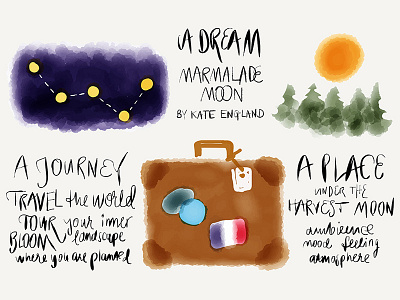 A DREAM
MARMALADE
MOON
BY KATE ENGLAND
A JOURNEY
TRAVEL the world
TOUR your inner
landscape
BLOOM
where you are planted
A PLACE
UNDER THE
HARVEST MOON
ambience
mood feeling
atmosphere